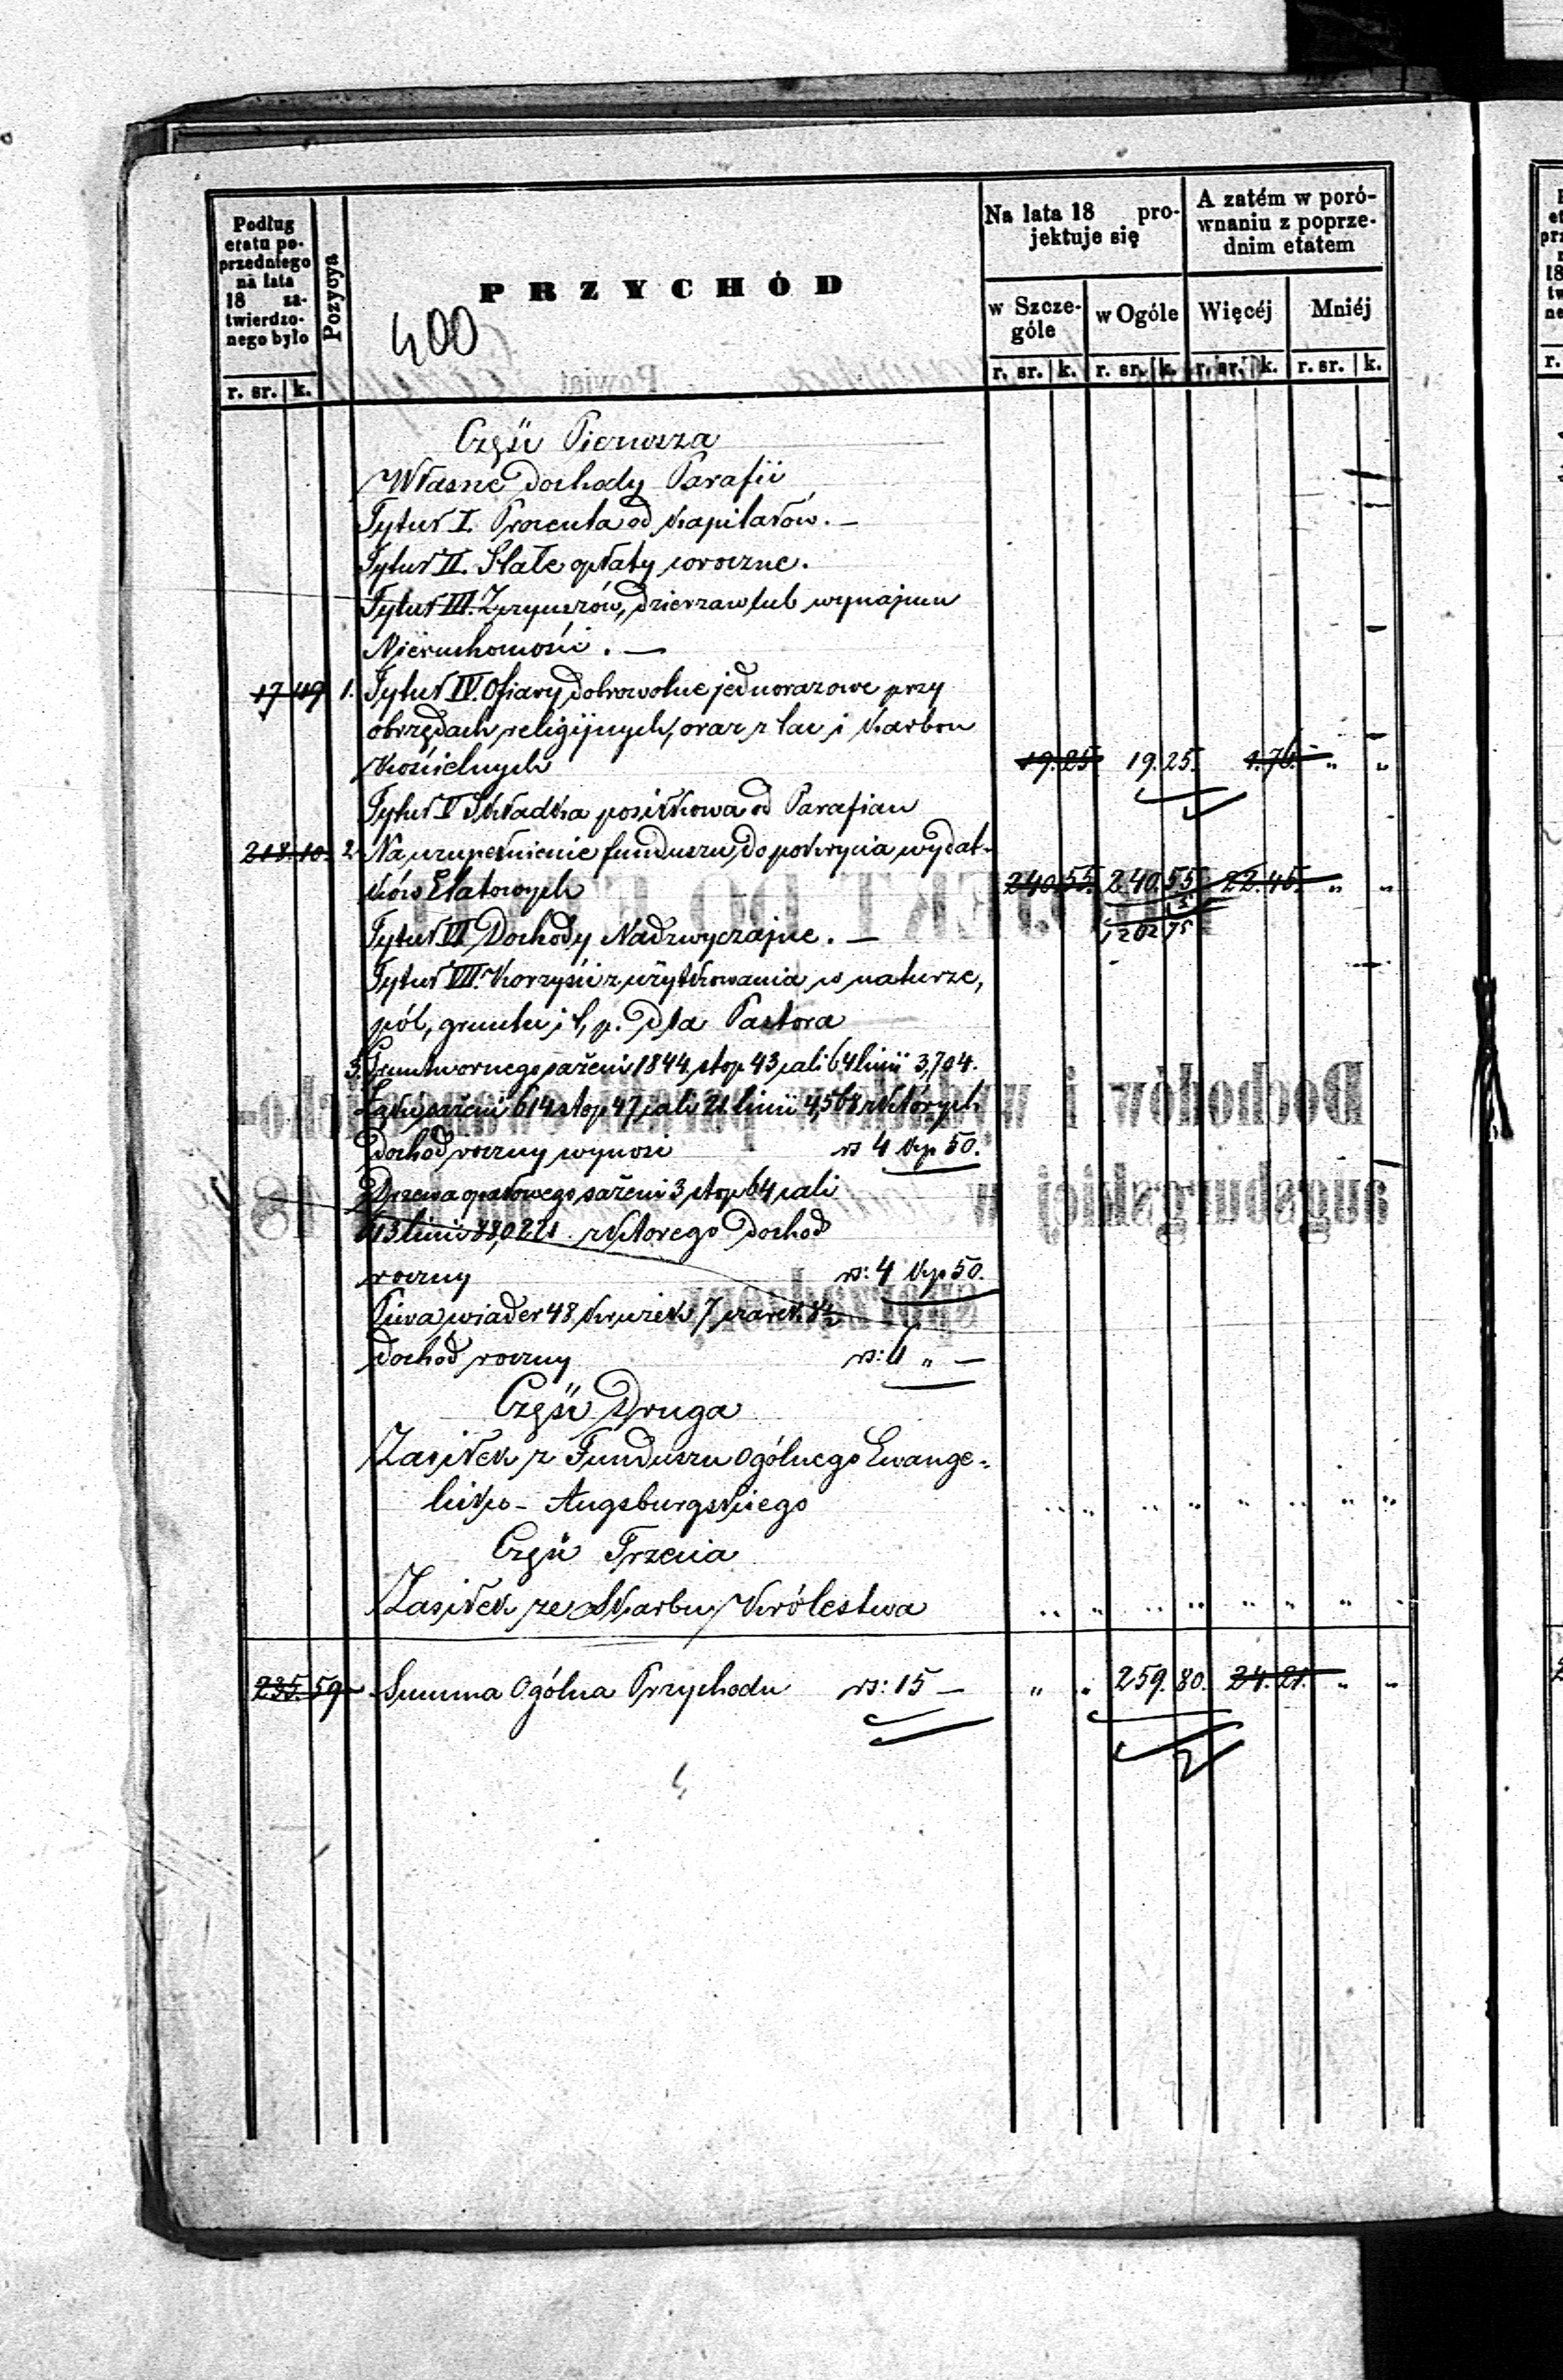 Podług etatu poprzedniego na lata 18 zatwierdzonego było
Pozycya
PRZYCHÓD
400
Na lata 18 projektuje się
A zatém w porównaniu z poprzednim etatem
w Szczególe
w Ogóle
Więcéj
Mniéj
r. sr. k.
r. sr. k. r. sr. k. r. sr. k. r. sr. k.
Część Pierwsza
Własne Dochody Parafii
Tytuł I. Procenta od Kapitałów. —
Tytuł II. Stałe opłaty coroczne.
Tytuł III. Z czynszów, dzierzaw lub wynajmu
Nieruchomości. —
17 49 1. Tytuł IV. Ofiary dobrowolne jednorazowe przy
obrzędach religijnych, oraz z tac i Karbon
Kościelnych 19. 25 19. 25. 1. 76. " "
Tytuł V Składka posiłkowa od Parafian
218. 10. 2. Na uzupełnienie funduszu do pokrycia wydat-
ków Etatowych 240. 55. 240. 55 22. 45. " "
Tytuł VI Dochody Nadzwyczajne. — 202 75
Tytuł VII. Korzyści z użytkowania w naturze,
pól, gruntu i t. p. dla Pastora
3. Gruntu ornego sażeni 1844, stop 43, cali 64 linii 3,704.
Łąki sażeni 614 stop 47, cali 21 linii 4,568 z których
dochod roczny wynosi rs 4 kp 50.
Drzewa opałowego sażeni 3, stop 64, cali
113 linii 88,0221 z którego Dochod
roczny rs: 4 kp 50.
Piwa wiader 48 kruzek 7 czarek 8½
Dochod roczny rs: 6 " —
Część Druga
Zasiłek z Funduszu Ogólnego Ewange-
licko - Augsburgskiego
Część Trzecia
Zasiłek ze Skarbu Królestwa
235. 59 Summa Ogólna Przychodu rs: 15 — " " 259. 80. 24. 21. " "